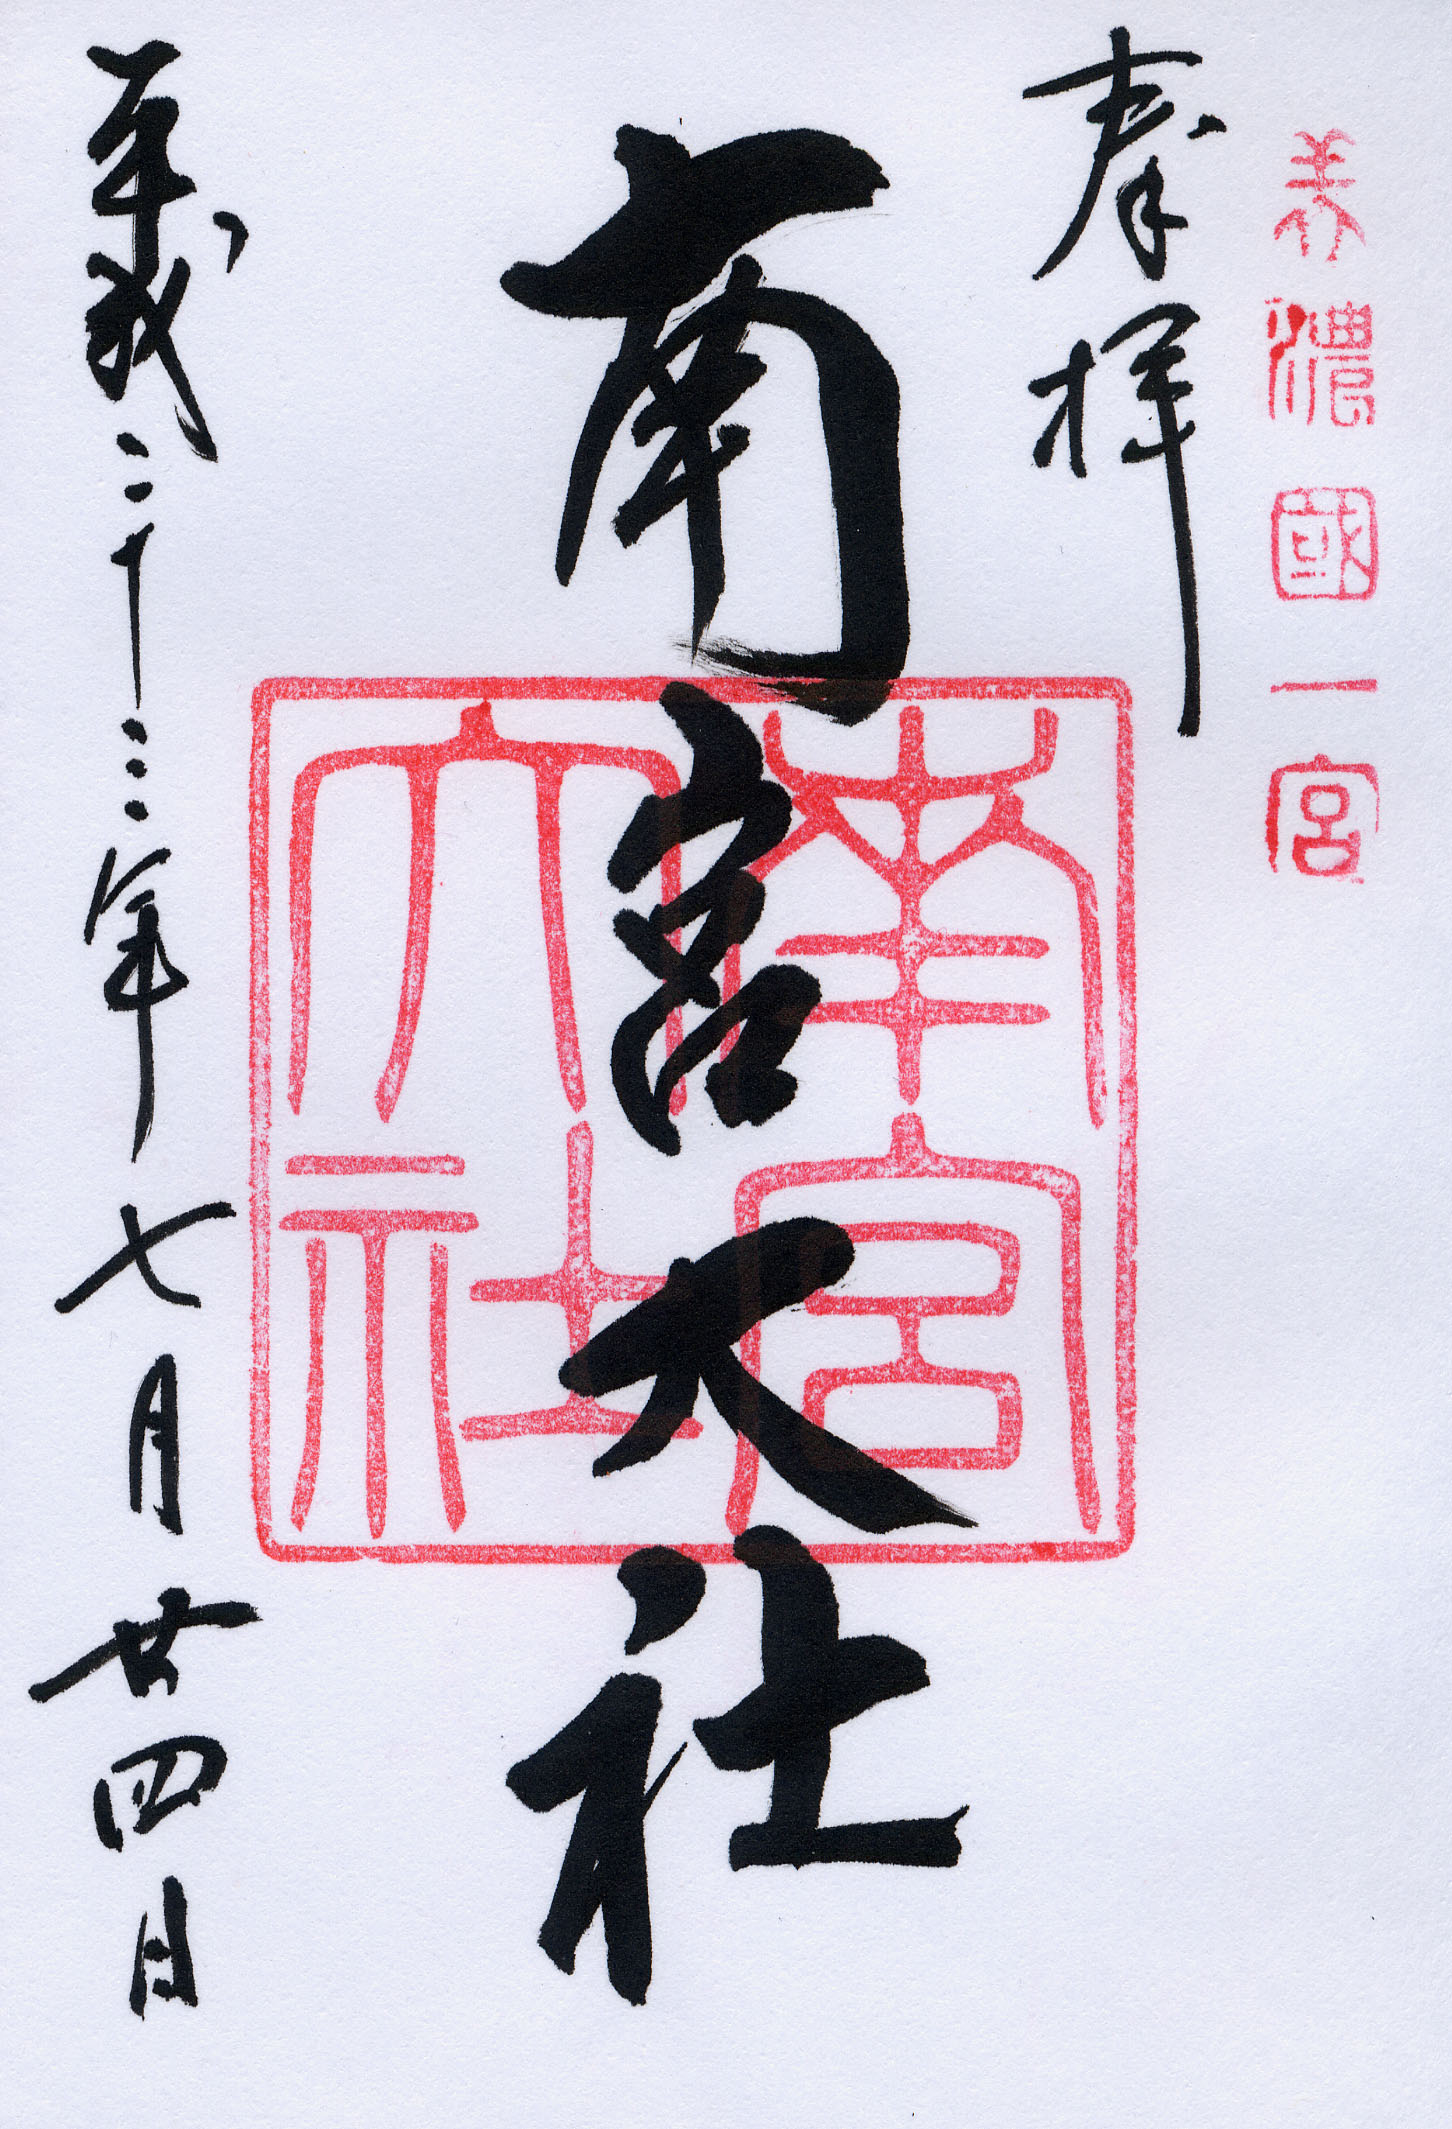 美濃國一宮
奉拝
南宮大社
南宮
大社
平成二十三年七月廿四日